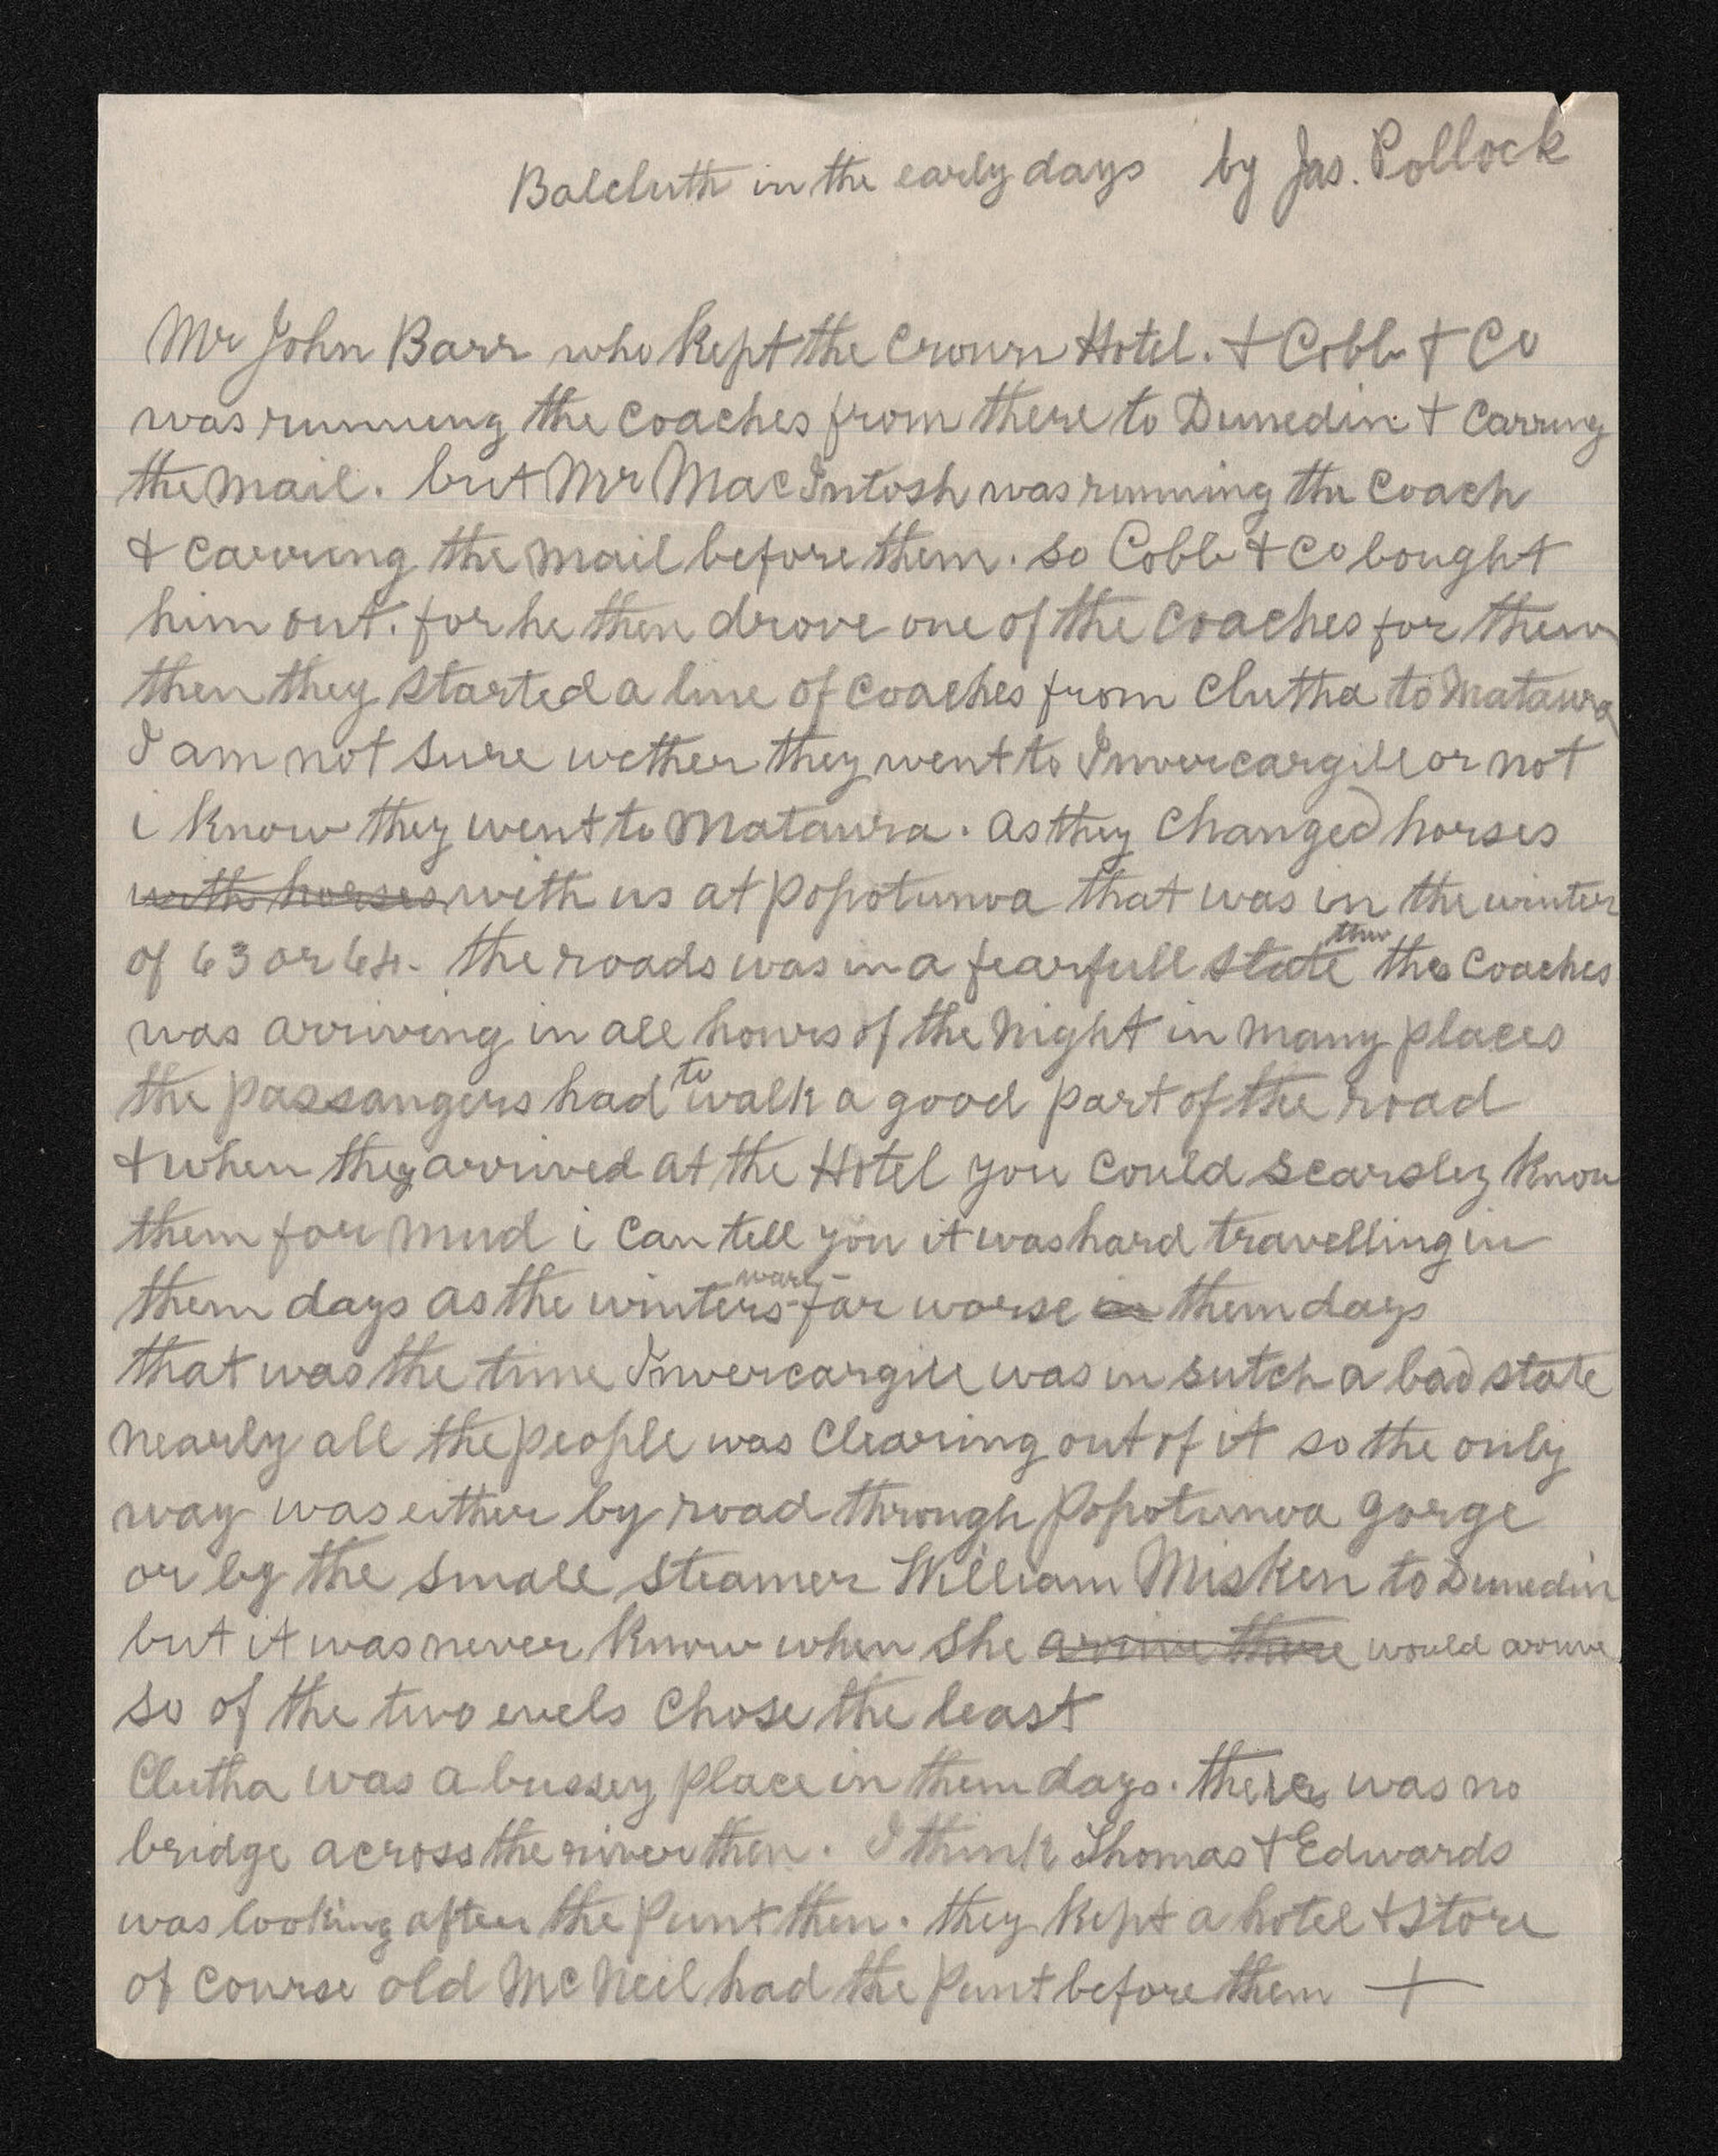 Balcluth in the early days by Jas. Pollock
Mr John Barr who kept the Crown Hotel. + Cobb + Co
was running the coaches from there to Dunedin + Carring
the mail. but Mr MacIntosh was running the coach
+ Carring the mail before them. so Cobb + Co bought
him out. for he then drove one of the coaches for them
then they started a line of coaches from Clutha to Mataura
I am not sure wether they went to Invercargill or not
i know they went to Mataura. as they changed horses
with horses with us at popotunoa that was in the winter
of 63 or 64. the roads was in a fearfull state then the coaches
was arriving in all hours of the night in many places
the passangers had to walk a good part of the road
+ when they arrived at the Hotel you could scarsley know
them for mud i can tell you it was hard travelling in
them days as the winters ware far worse in them days
that was the time Invercargill was in sutch a bad state
nearly all the people was clearing out of it so the only
way was either by road through popotunoa gorge
or by the small steamer William Misken to Dunedin
but it was never know when she arrive there would arrive
so of the two evels chose the least
Clutha was a bussey place in them days. there was no
bridge across the river then. I think Thomas + Edwards
was looking after the punt then. they kept a hotel + store
of course old McNeil had the punt before them +